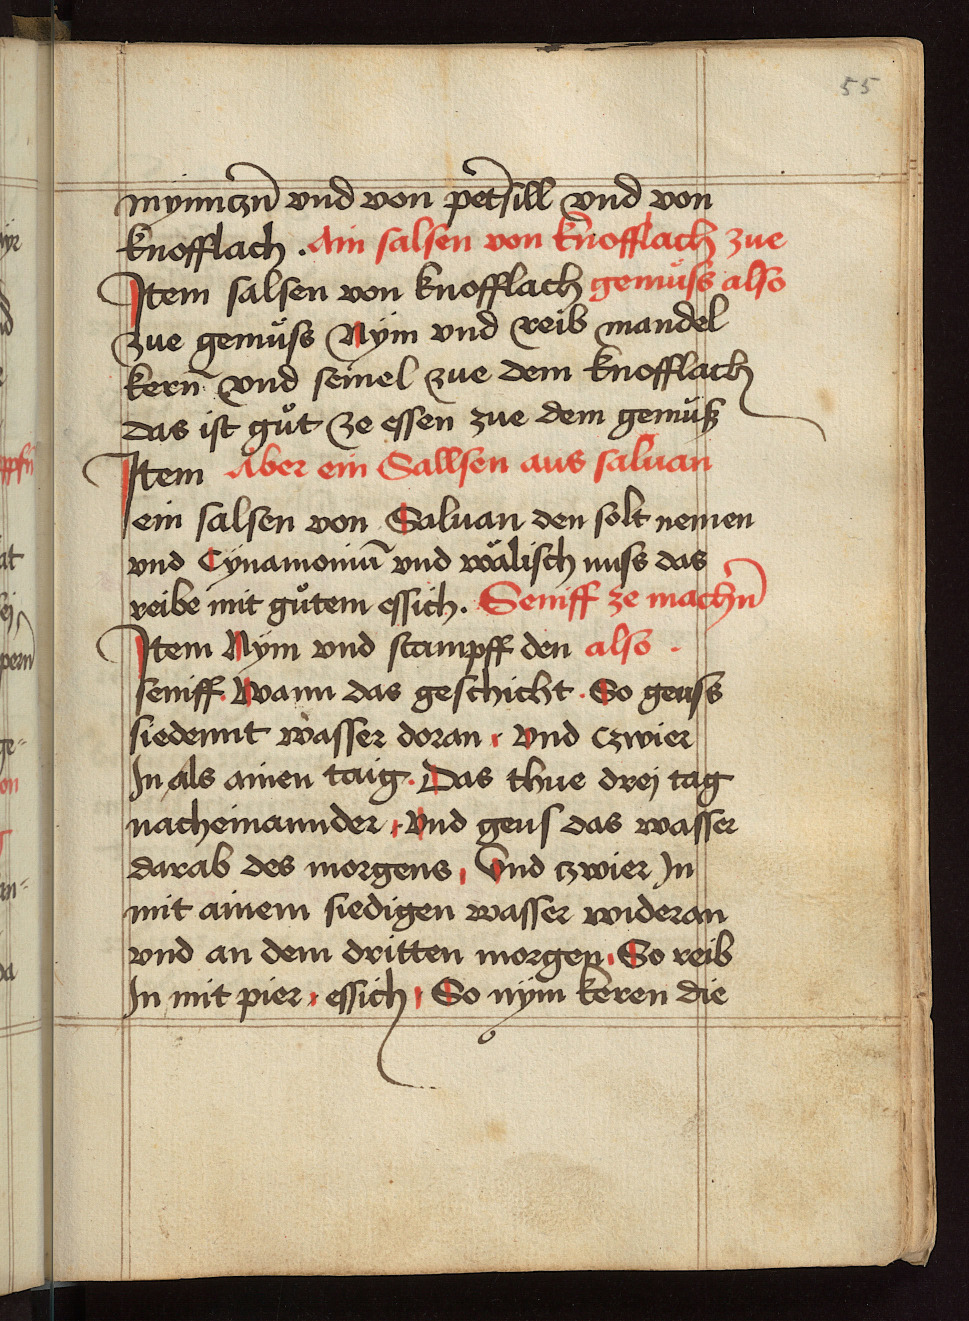 55
mynnczn̄ vnd von petr̄sill vnd von
knofflach . Ain salsen von knofflach zue
Item salsen von knofflach gemüss also
zue gemüss Nym vnd reib mandel
kern̄ vnd semel zue dem knofflach
das ist gůt ze essen zue dem gemüß
Item Aber ein Sallsen aus saluan
ein salsen von Saluan den solt nemen
vnd Cynamoniū vnd wälisch nuss das
reibe mit gůtem essich . Seniff ze machn̄
Item Nym vnd stampff den also .
seniff . Wann das geschicht . So geuss
siedennt wasser doran , vnd czwier
In als ainen taig . Das thue drej tag
nacheinannder , Vnd geus das wasser
darab des morgens , Vnd czwier In
mit ainem siedigen wasser wideran
vnd an dem dritten morgen , So reib
In mit pier , essich , So nym keren die